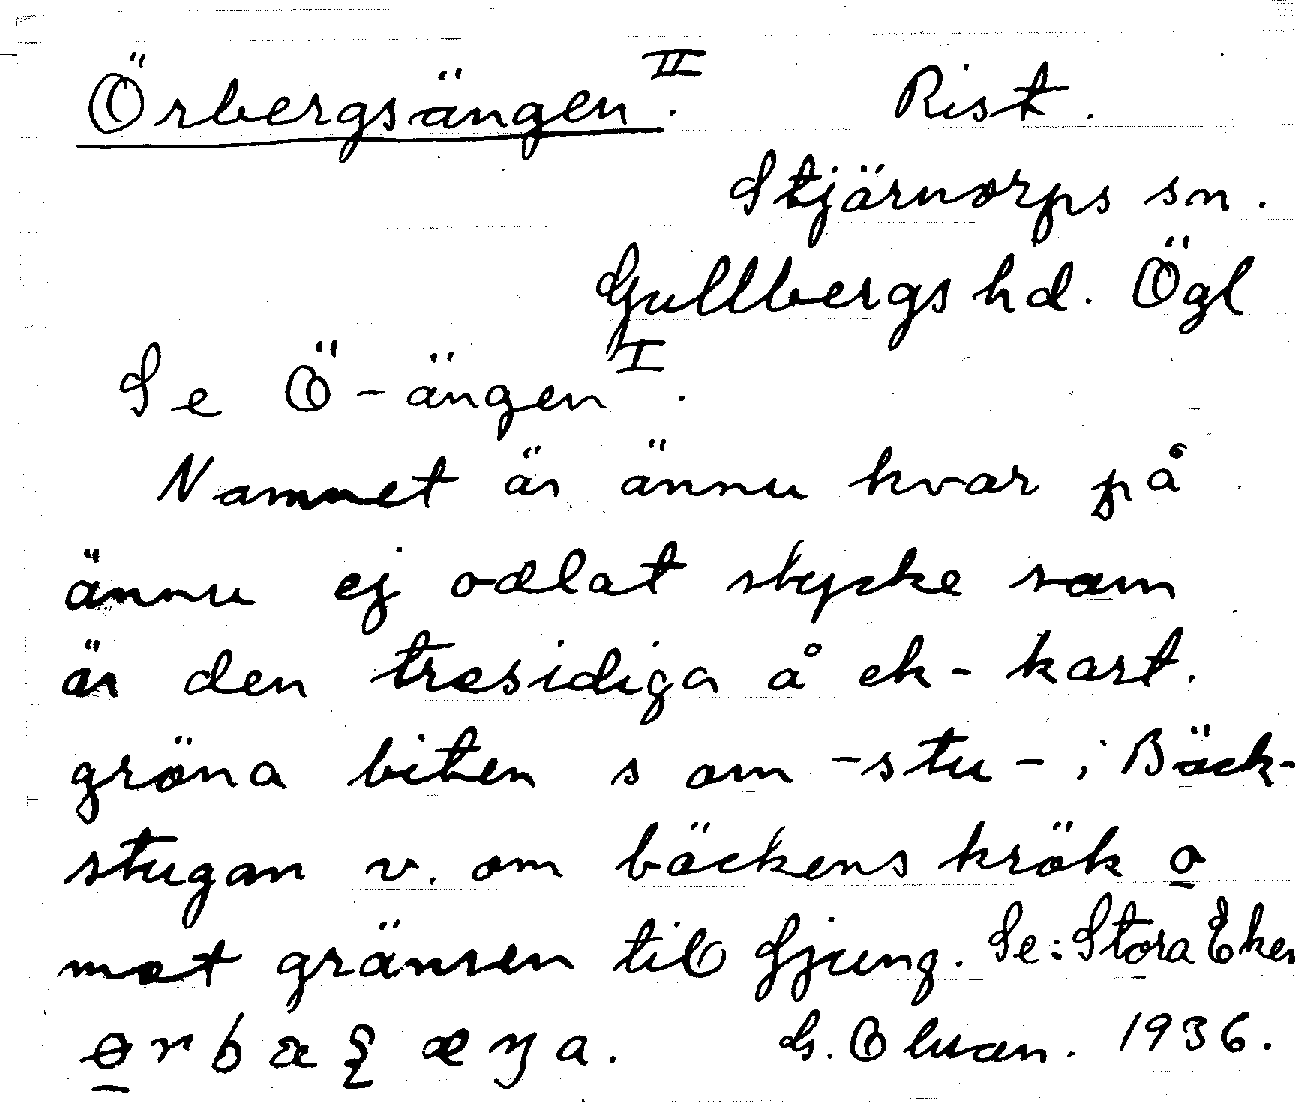 Örbergsängen II. Rist.
Stjärnorps sn.
Gullbergs hd. Ögl
Se Ö-ängen I.
Namnet är ännu kvar på
ännu ej odlat stycke som
är den tresidiga å ek-kart.
gröna biten s om -stu- i Bäck-
stugan v. om bäckens krök o
mot gränsen till Ljung. Se: Stora Eken
G. 1936.